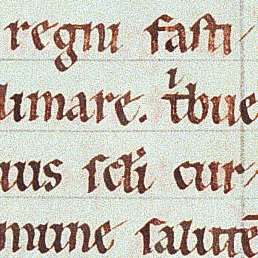 regni fasti
limare. tbue
uus scli cur
mune salutē